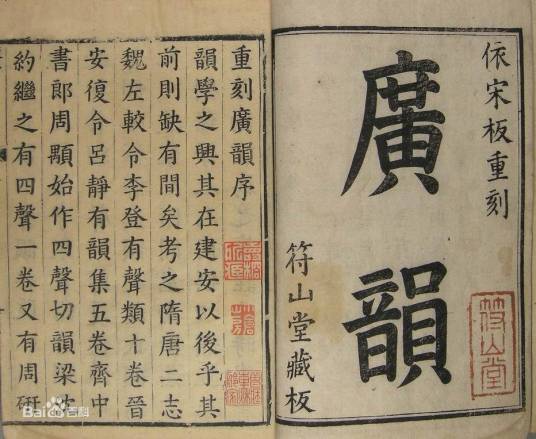 依宋板重刻
廣韻
符山堂藏板
符山堂
重刻廣韻序
韻學之興其在建安以後乎其
前則缺有間矣考之隋唐二志
魏左較令李登有聲類十卷晉
安復令呂靜有韻集五卷齊中
書郎周顒始作四聲切韻梁沈
約繼之有四聲一卷又有周研
Bai百科